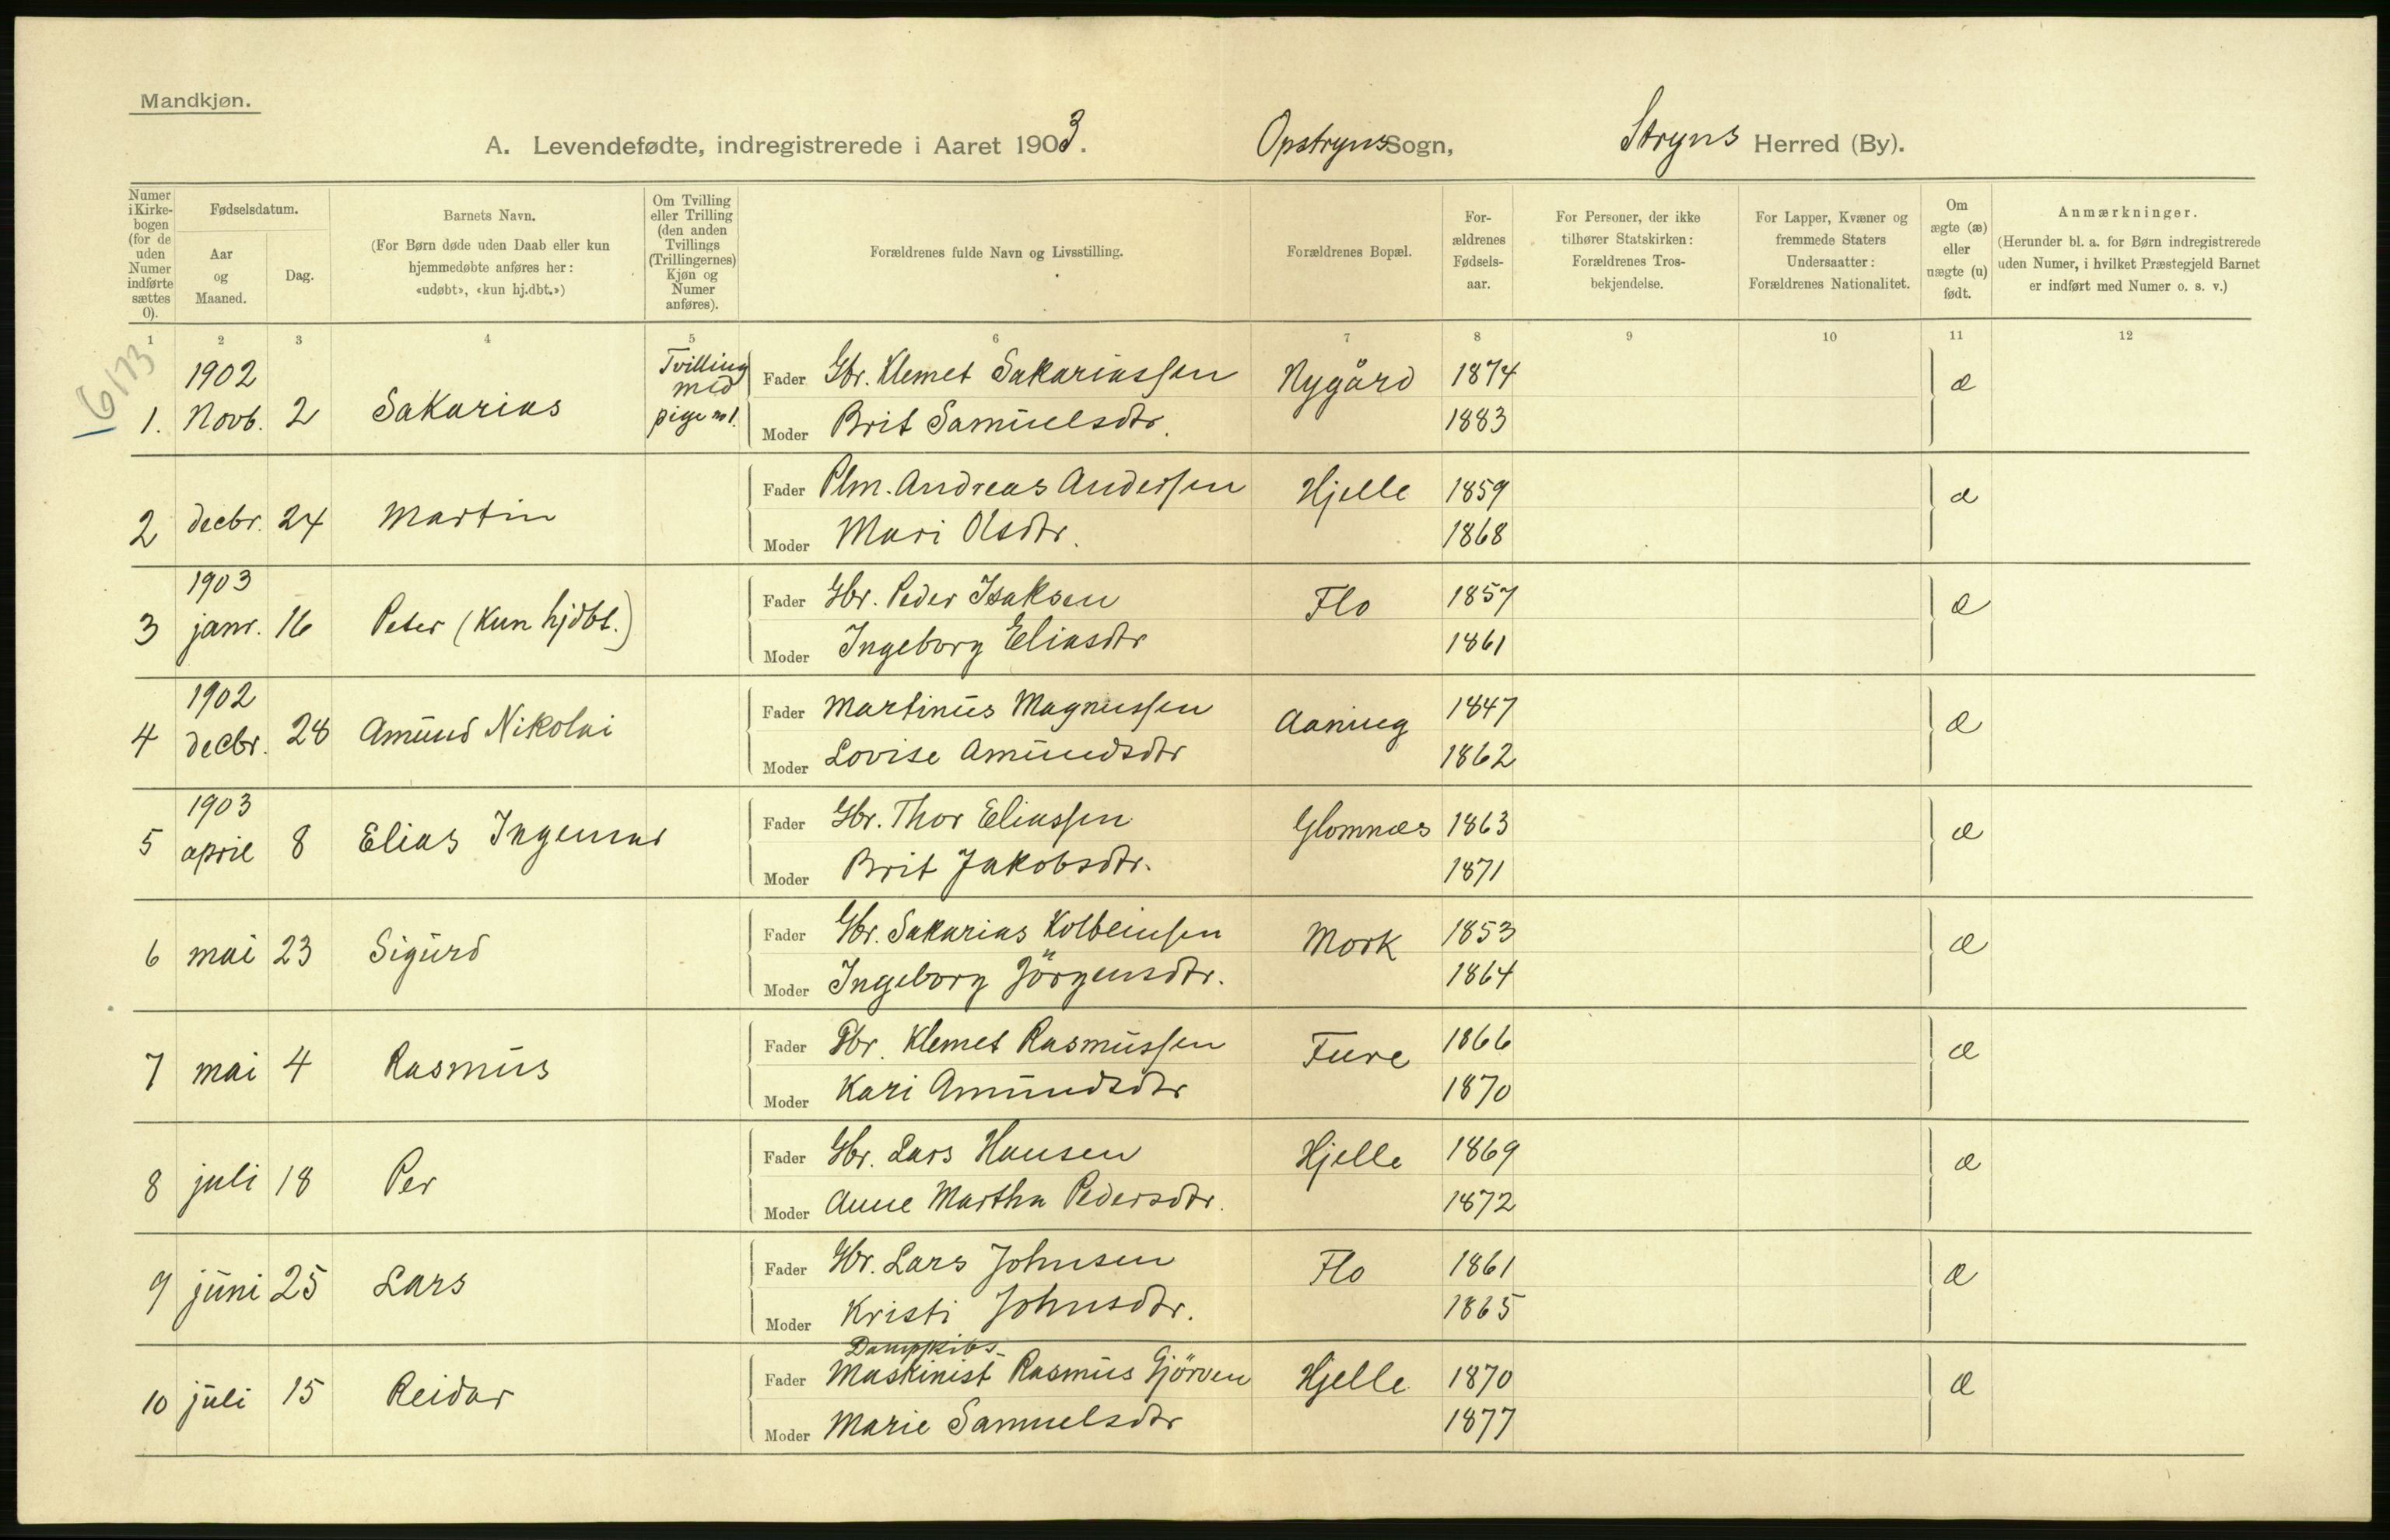 Mandkjøn.
A. Levendefødte, indregistrerede i Aaret 1903. Opstryns Sogn, Stryns Herred (By).
Numer i Kirkebogen (for de uden Numer indførte sættes 0).
Fødselsdatum.
Aar og Maaned.
Dag.
Barnets Navn.
(For Børn døde uden Daab eller kun hjemmedøbte anføres her: «udøbt», «kun hj.dbt.»)
Om Tvilling eller Trilling (den anden Tvillings (Trillingernes) Kjøn og Numer anføres).
Forældrenes fulde Navn og Livsstilling.
Forældrenes Bopæl.
For-ældrenes Fødsels-aar.
For Personer, der ikke tilhører Statskirken: Forældrenes Tros-bekjendelse.
For Lapper, Kvæner og fremmede Staters Undersaatter: Forældrenes Nationalitet.
Om ægte (æ) eller uægte (u) født.
Anmærkninger.
(Herunder bl. a. for Børn indregistrerede uden Numer, i hvilket Præstegjeld Barnet er indført med Numer o. s. v.)
1 2 3 4 5 6 7 8 9 10 11 12
16/73
1. 1902 Novb. 2 Sakarias Tvilling med pige n 1. Fader Gbr. Klemet Sakariassen Nygård 1874 æ
Moder Brit Samuelsdtr. 1883
2 decbr. 24 Martin Fader Plm. Andreas Anderssen Hjelle 1859 æ
Moder Mari Olsdtr. 1868
3 1903 janr. 16 Peter (kun hjdbt.) Fader Gbr. Peder Isaksen Flo 1857 æ
Moder Ingeborg Eliasdtr 1861
4 1902 decbr. 28 Amund Nikolai Fader Martinus Magnussen Aaning 1847 æ
Moder Lovise Amundsdtr 1862
5 1903 april 8 Elias Ingemar Fader Gbr. Thor Eliassen Glomnæs 1863 æ
Moder Brit Jakobsdtr. 1871
6 mai 23 Sigurd Fader Gbr. Sakarias Kolbeinsen Mork 1853 æ
Moder Ingeborg Jörgensdtr. 1864
7 mai 4 Rasmus Fader Gbr. Klemet Rasmussen Fure 1866 æ
Moder Kari Amundsdtr 1870
8 juli 18 Per Fader Gbr. Lars Hansen Hjelle 1869 æ
Moder Anne Martha Pedersdtr. 1872
9 juni 25 Lars Fader Gbr. Lars Johnsen Flo 1861 æ
Moder Kristi Johnsdtr. 1865
10 juli 15 Reidar Fader Dampskibs-Maskinist Rasmus Gjörven Hjelle 1870 æ
Moder Marie Samuelsdtr 1877